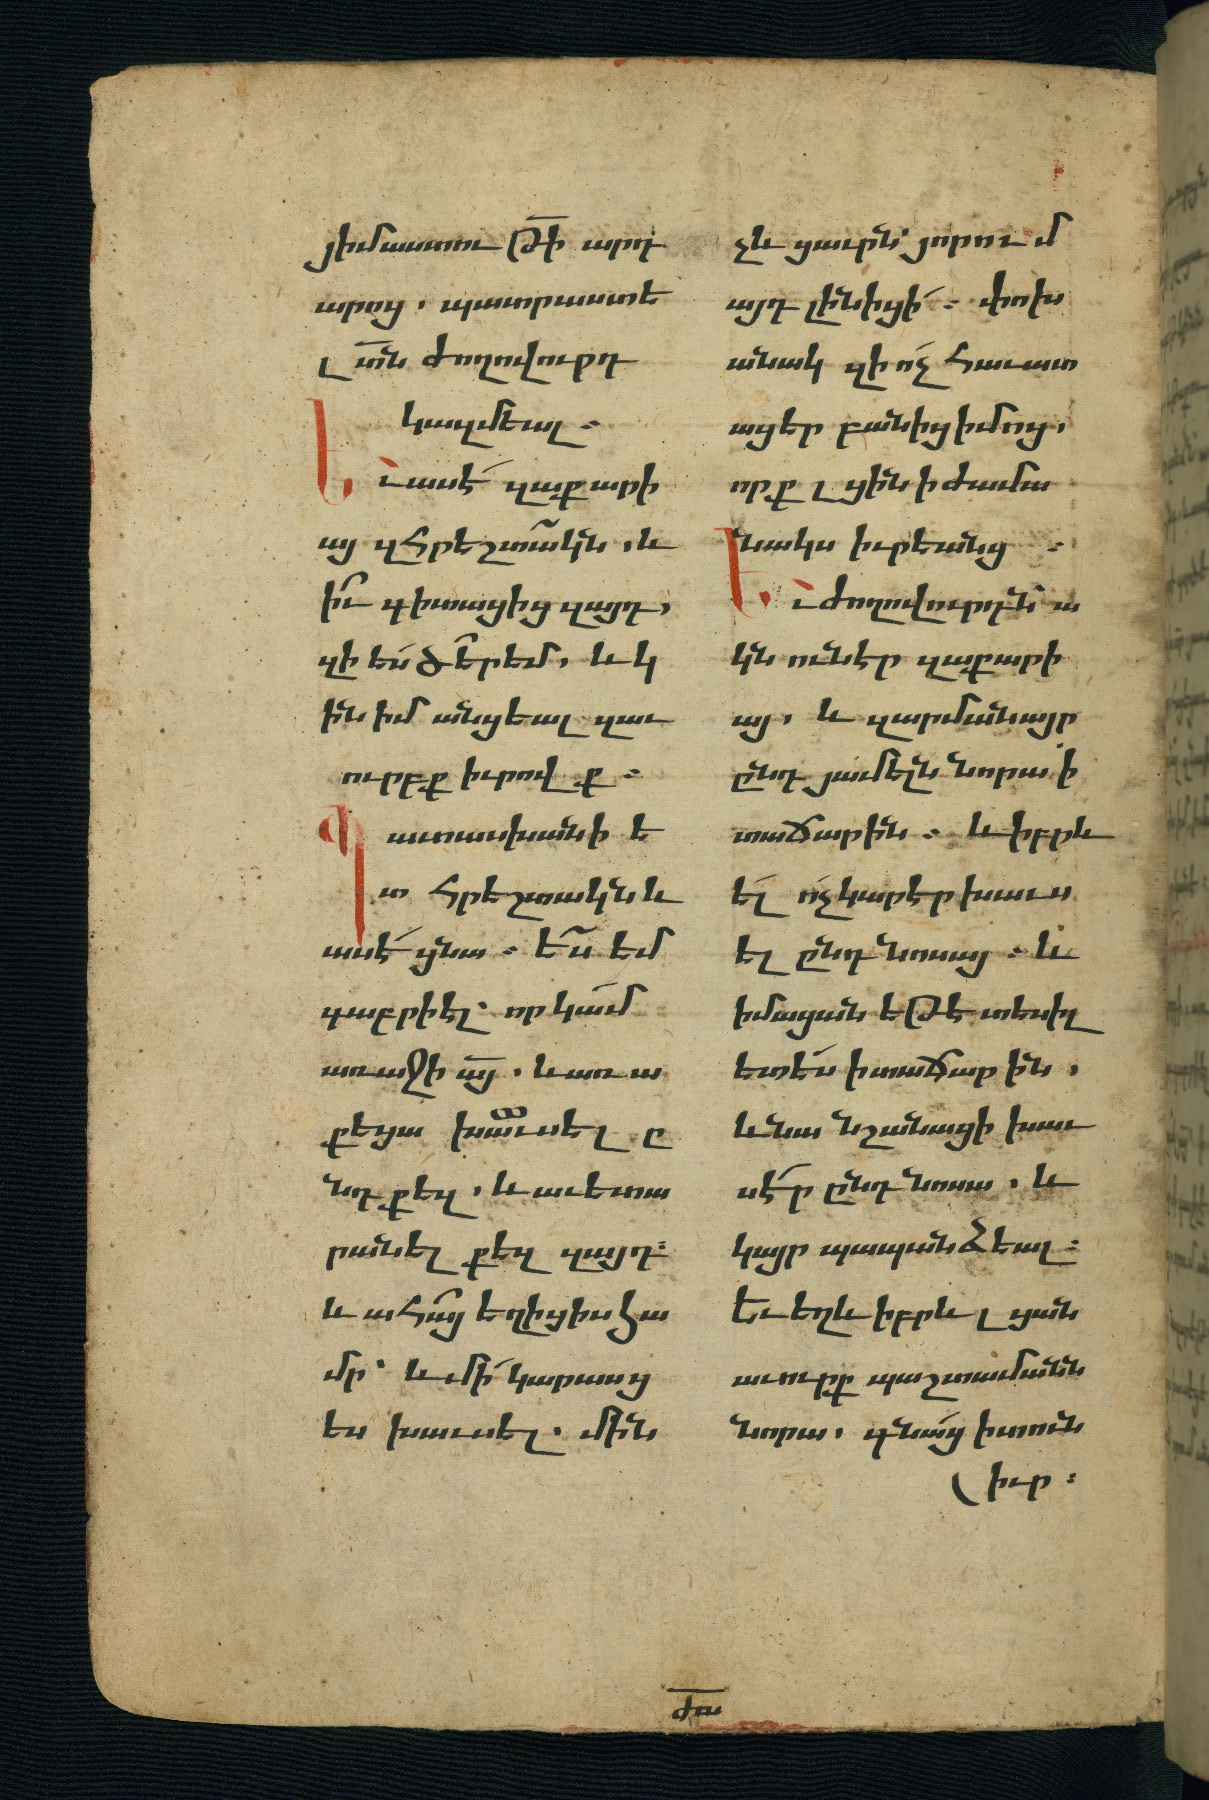 յիմաստու թի արդ
արոց, պատրաստե
լ տն ժողովուրդ
կազմեալ։
Եւ ասէ զաքարի
այ ցհրեշտակն, և
իւ գիտացից զայդ,
զի ես ծերեմ, և կ
ին իմ անցեալ զաւ
ուրբք իւրովք։
Պատասխանի ե
տ հրեշտակն և
ասէ ցնա։ ես եմ
գաբրիէլ. որ կամ
առաջի այ. և առա
քեցա խաւսել ը
նդ քեզ, և աւետա
րանել քեզ զայդ։
և ահայ եղիցիս հա
մր՝ և մի կարասց
ես խաւսել. մին
չև ցաւրն՝ յորում
այդ լինիցի։ փոխ
անակ զի ոչ հաւատ
ացեր բանից իմոց,
որք լցին ի ժամա
նակս իւրեանց։
Եւ ժողովուրդն ա
կն ունէր զաքարի
այ, և զարմանայր
ընդ յամելն նորա ի
տաճարին։ և իբրև
ել ոչ կարէր խաւս
ել ընդ նոսայ։ և
իմացան եթե տեսիլ
ետես ի տաճարին,
և նա նշանացի խաւ
սէր ընդ նոսա, և
կայր պապանձեալ։
Եւ եղև իբրև լցան
աւուրք պաշտամանն
նորա, գնաց ի տուն
իւր։
ժա